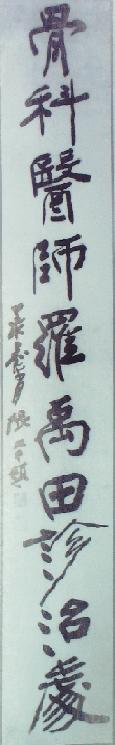 骨科醫師羅禹田診治處